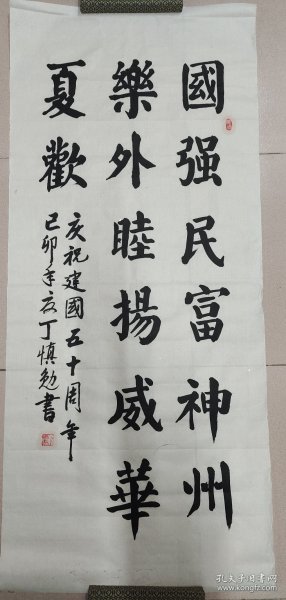 國强民富神州
樂外睦揚威華
夏歡
庆祝建國五十周年
己卯年夏丁慎勉書
孔夫子旧书网
www.kongfz.com